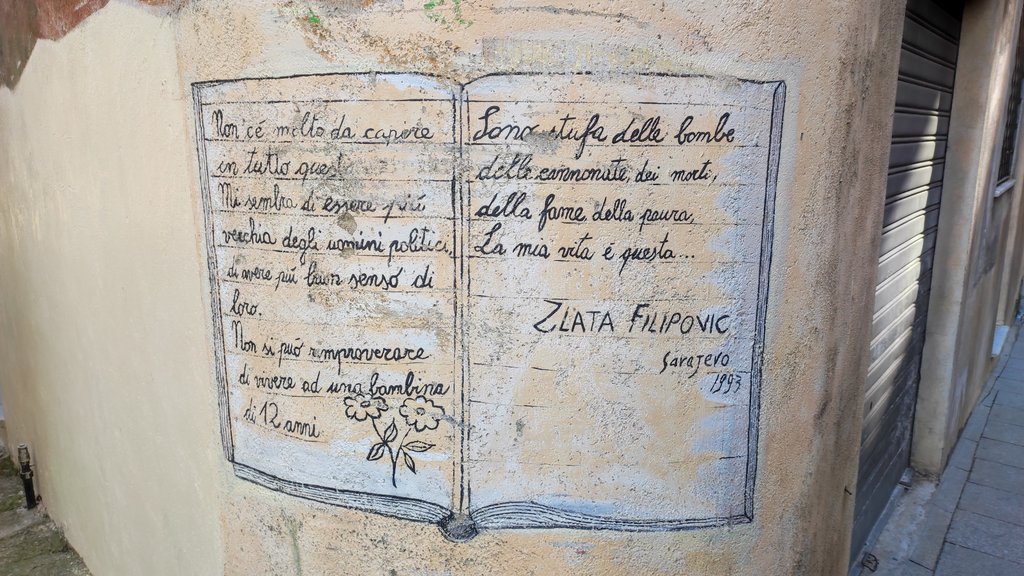 Non c'é molto da capire
in tutto questo
Mi sembra di essere più
vecchia degli uomini politici,
di avere più buon senso di
loro.
Non si può rimproverare
di vivere ad una bambina
di 12 anni
Sono stufa delle bombe
delle cannonate, dei morti,
della fame, della paura,
La mia vita é questa...
ZLATA FILIPOVIC
Sarajevo
1993